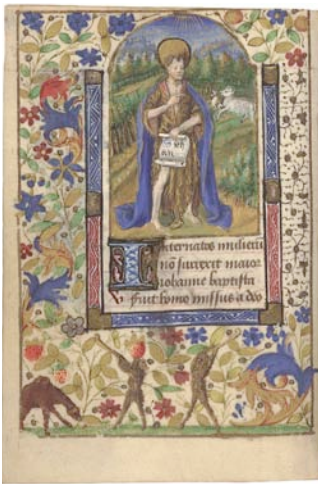 Inter natos mulierū
nō surrexit maior
iohanne baptista
v fuit homo missus a deo